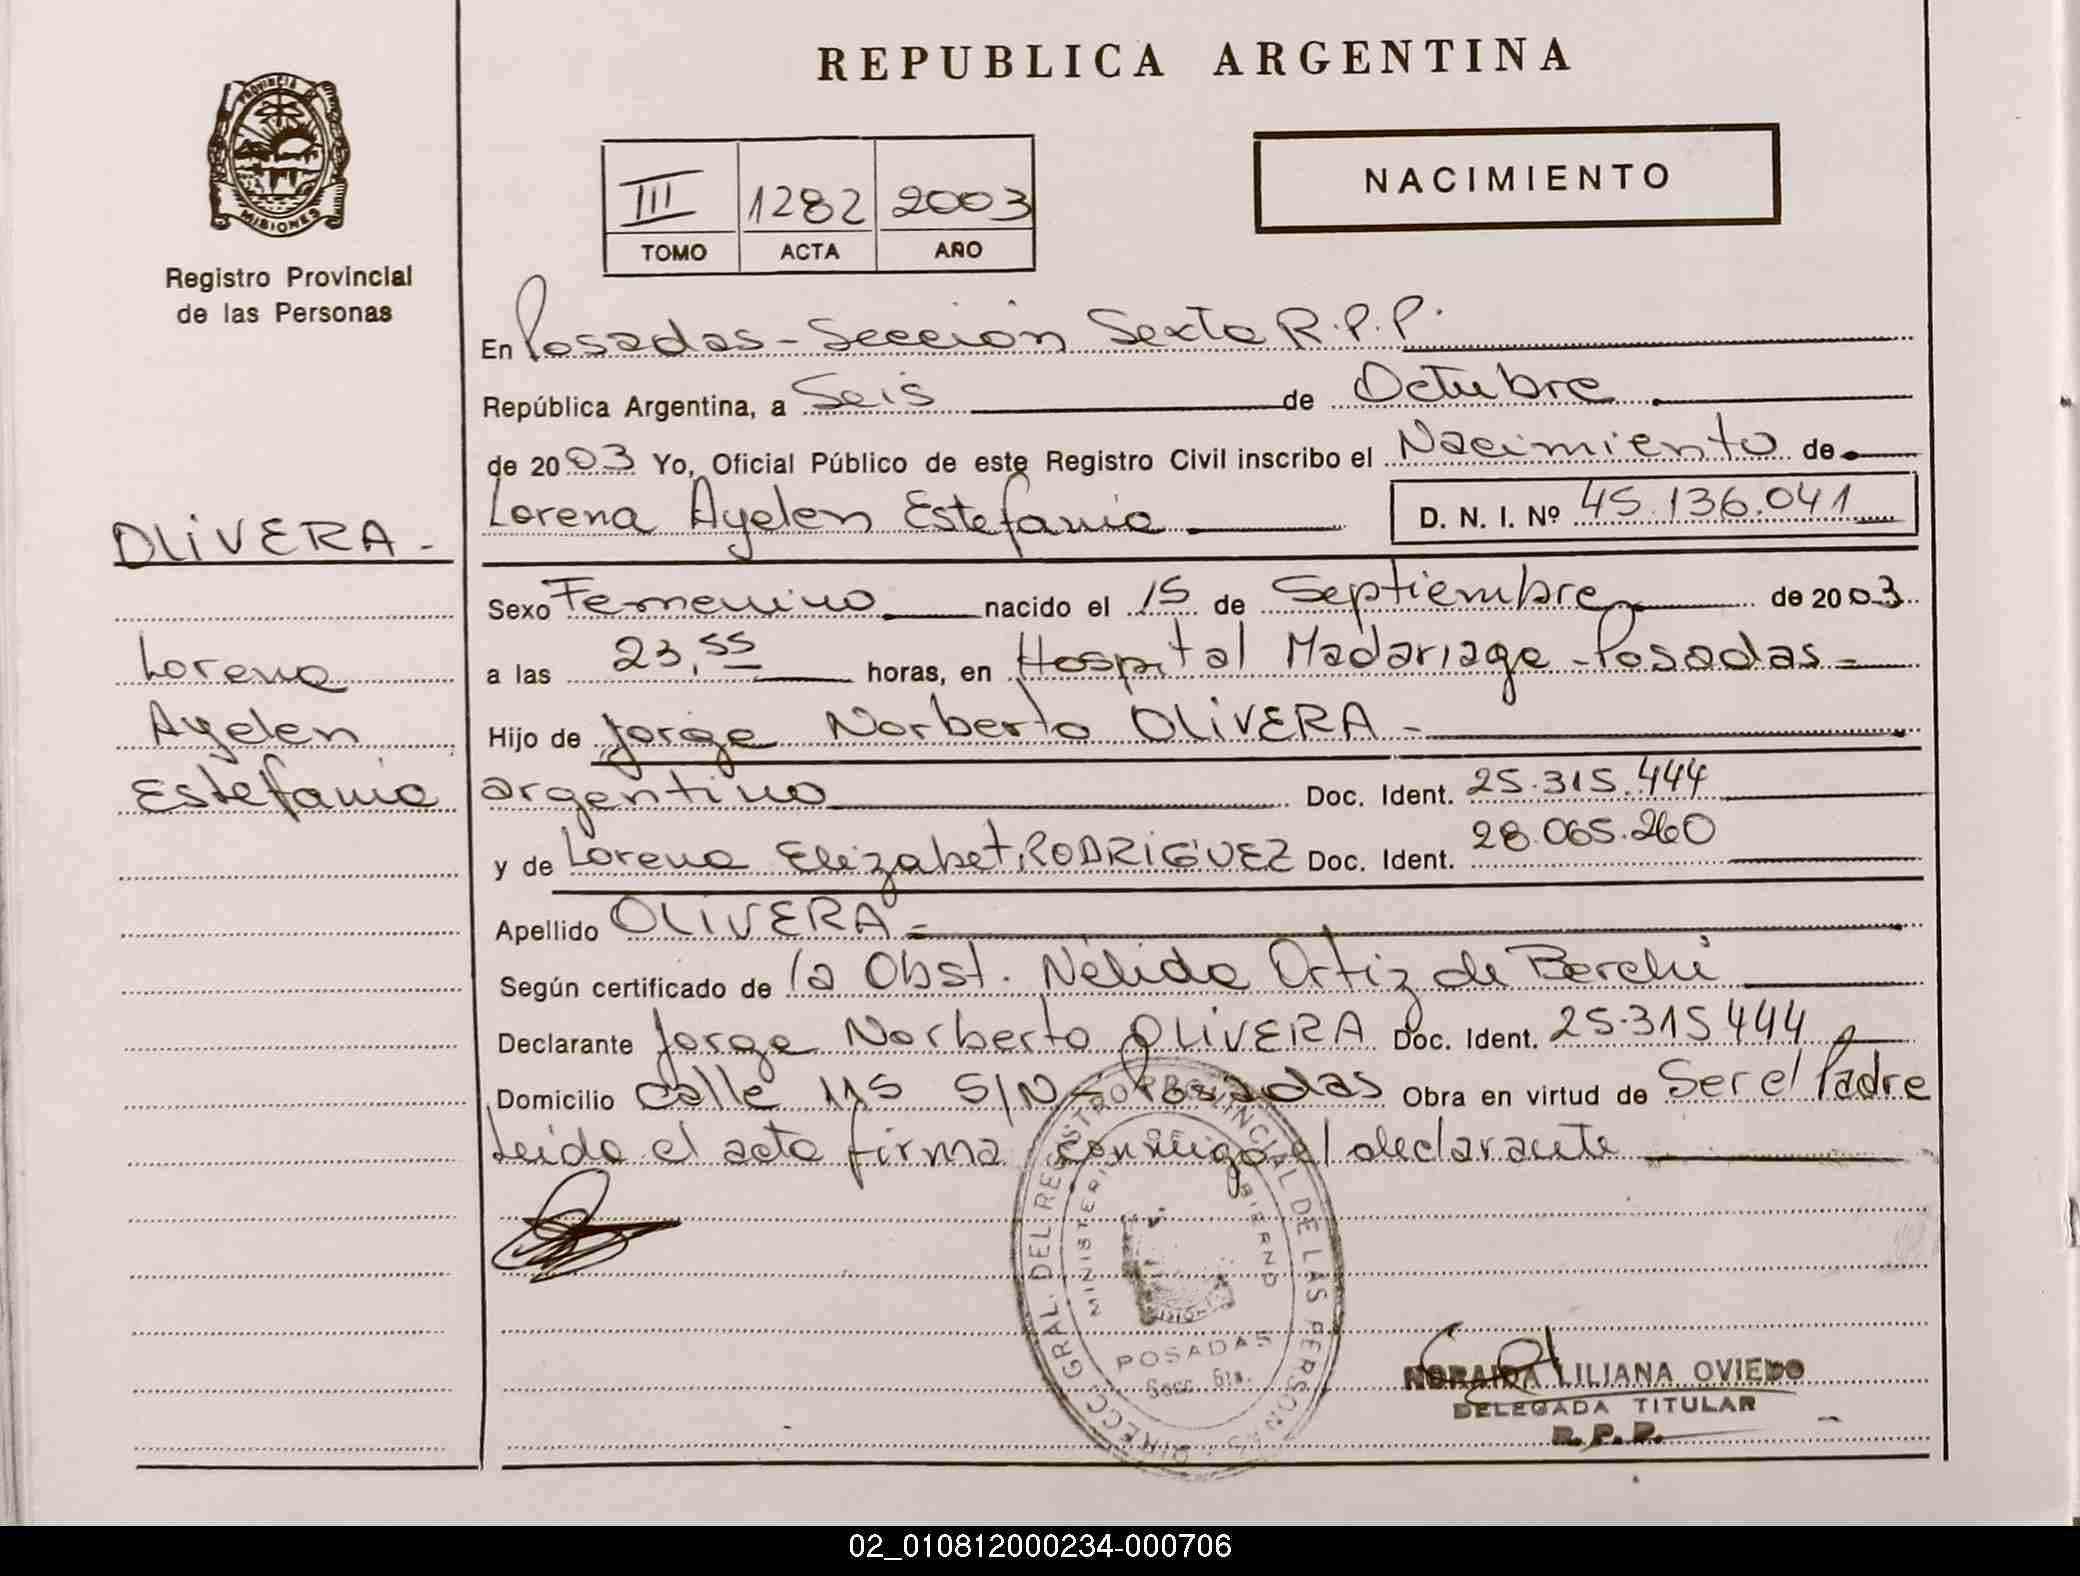 REPUBLICA ARGENTINA
PROVINCIA DE
MISIONES
Registro Provincial
de las Personas
III 1282 2003
TOMO ACTA AÑO
NACIMIENTO
En Posadas - Sección Sexta R.P.P.
República Argentina, a Seis de Octubre
de 2003 Yo, Oficial Público de este Registro Civil inscribo el Nacimiento de
Lorena Ayelen Estefania D. N. I. Nº 45.136.041
OLIVERA -
Lorena
Ayelen
Estefania
Sexo Femenino nacido el 15 de Septiembre de 2003
a las 23,55 horas, en Hospital Madariaga - Posadas -
Hijo de Jorge Norberto OLIVERA -
argentino Doc. Ident. 25.315.444
y de Lorena Elizabet RODRIGUEZ Doc. Ident. 28.065.260
Apellido OLIVERA -
Según certificado de la Obst. Nélida Ortiz de Berchi
Declarante Jorge Norberto OLIVERA Doc. Ident. 25.315.444
Domicilio Calle 115 S/N - Posadas Obra en virtud de Ser el Padre
Leida el acta firma conmigo el declarante
DIRECC. GRAL. DEL REGISTRO PROVINCIAL DE LAS PERSONAS
MINISTERIO DE GOBIERNO
POSADAS
Secc. 6ta.
NORAIDA LILIANA OVIEDO
DELEGADA TITULAR
R. P. P.
02_010812000234-000706